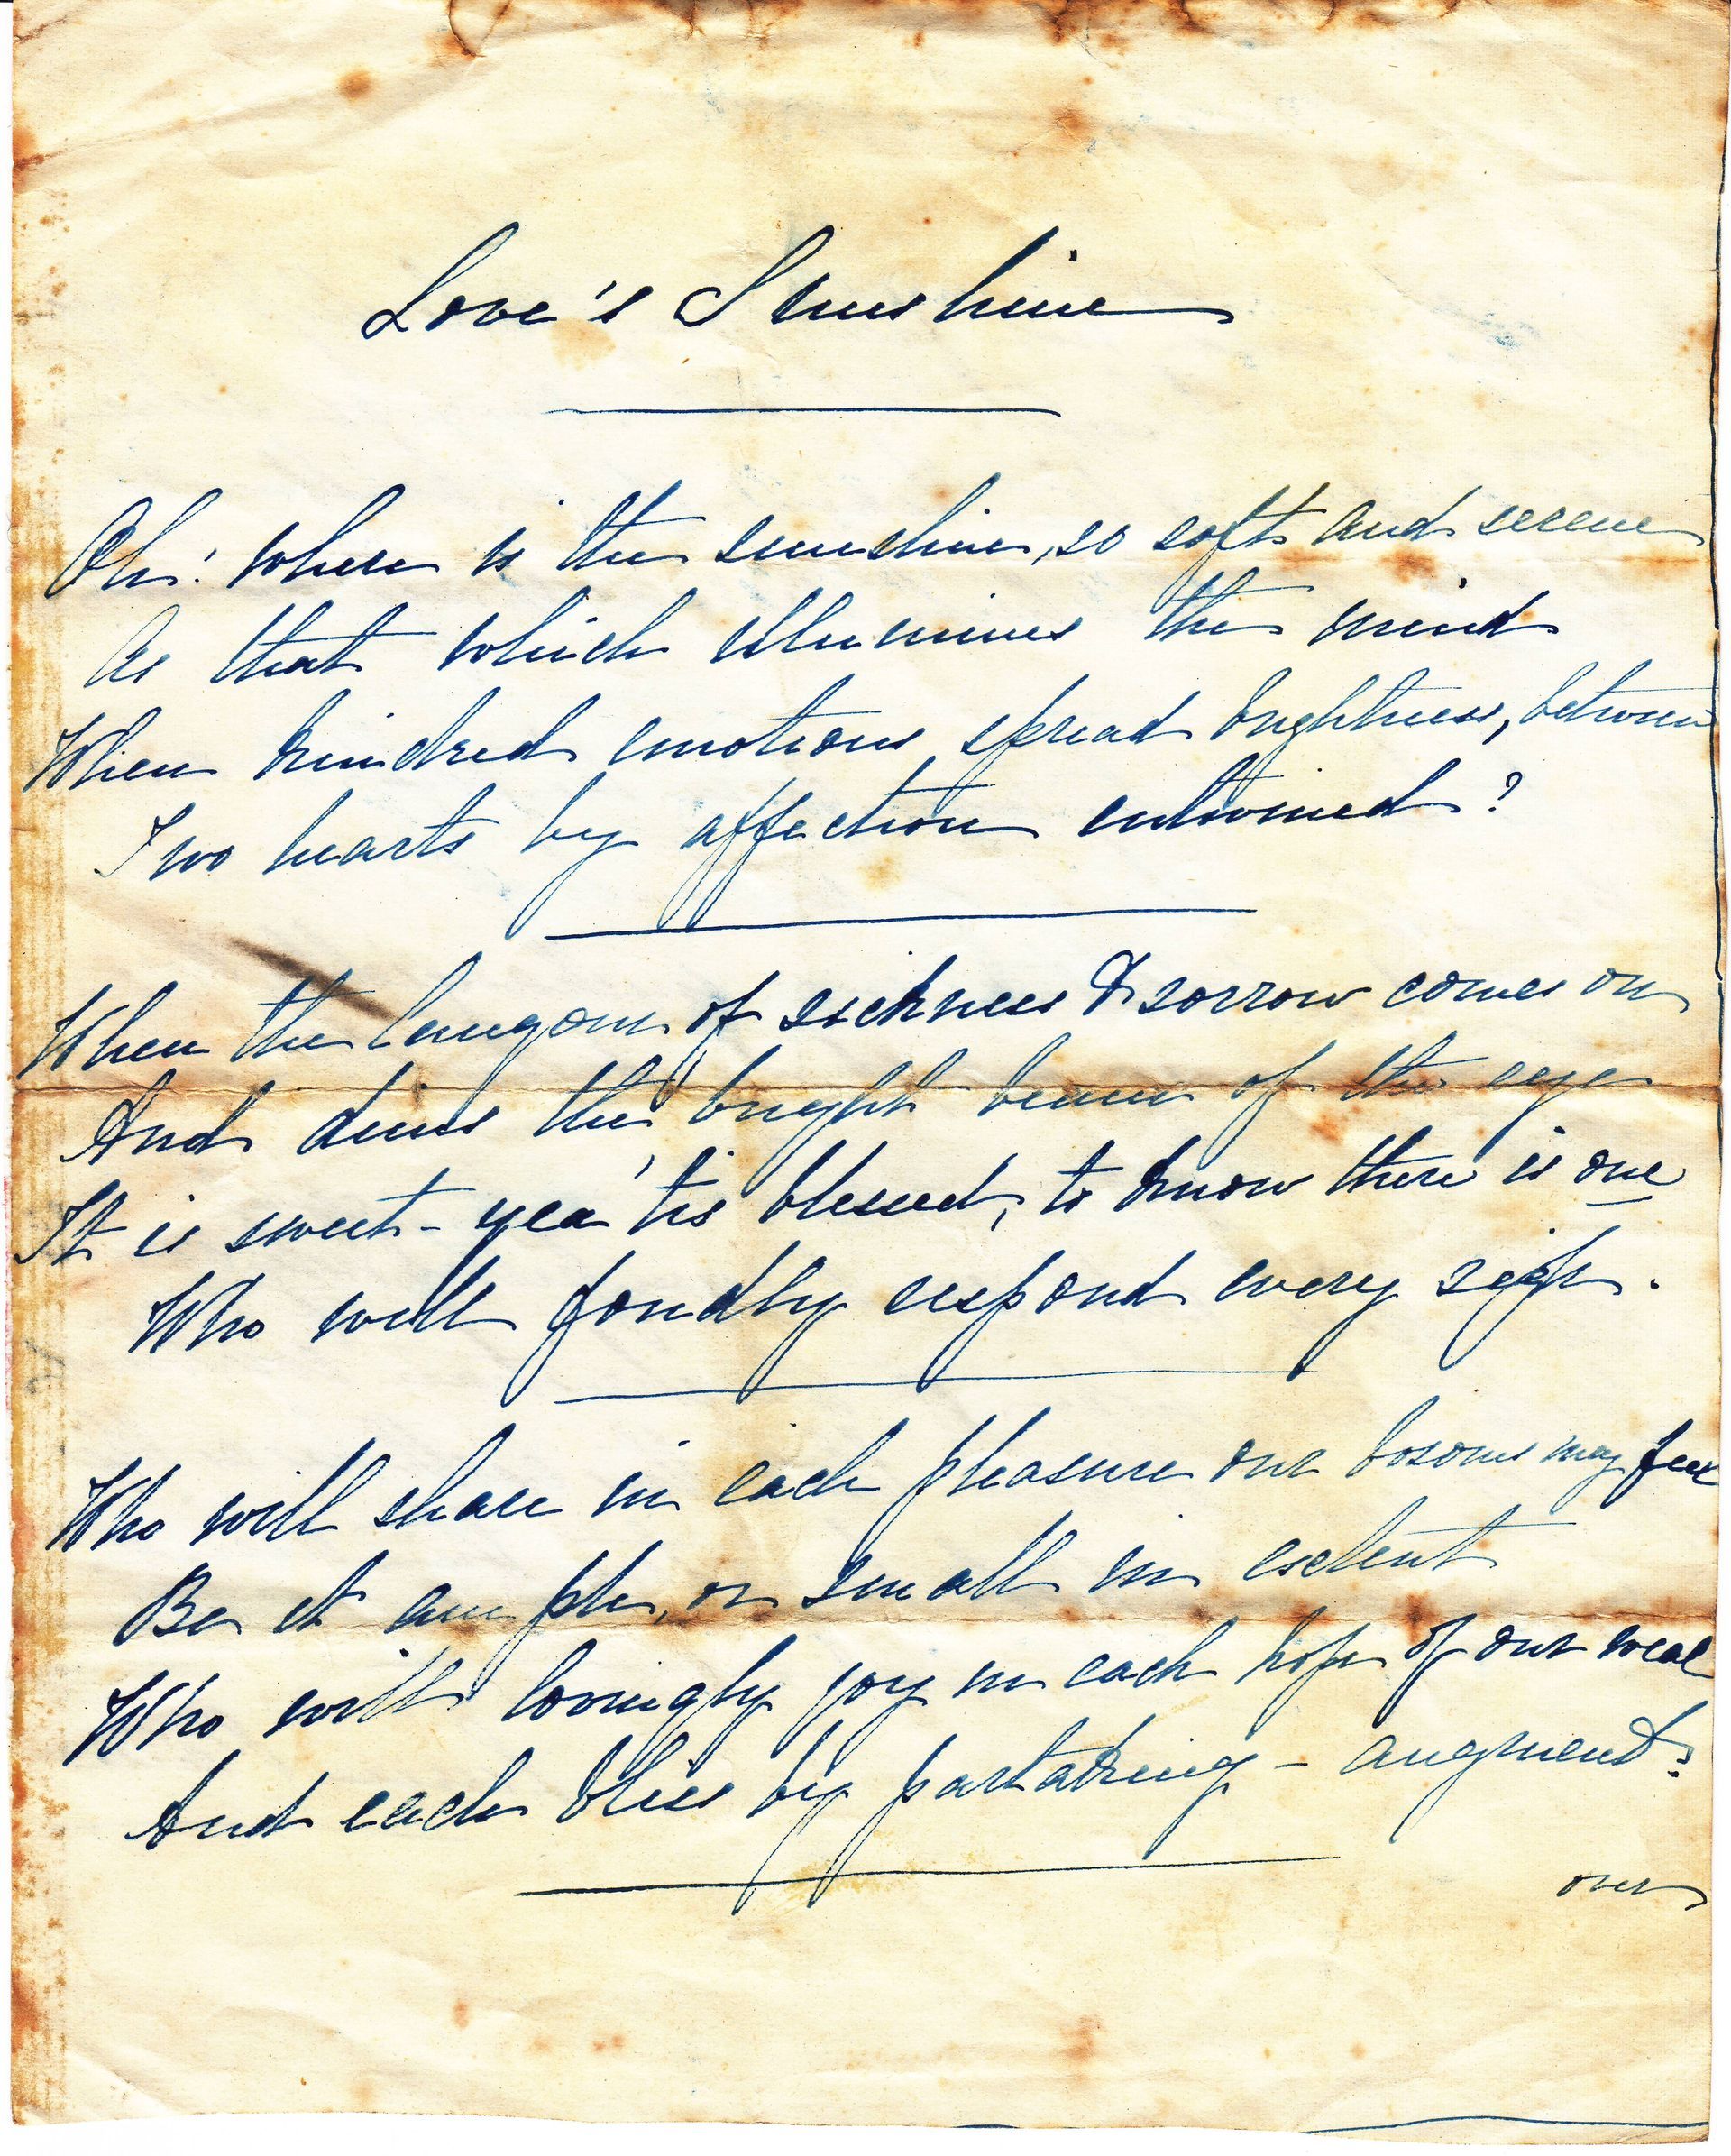 Love's Sunshine
Oh! where is the sunshine, so soft and serene
As that which illumines the mind
When kindred emotions spread brightness, between
Two hearts by affection entwined?
When the langour of sickness & sorrow comes on
And dims the bright beam of the eye
It is sweet - yea 'tis blessed, to know there is one
Who will fondly respond every sigh.
Who will share in each pleasure our bosoms may feel
Be it ample, or small in extent
Who will lovingly joy in each hope of our weal
And each bliss by partaking - augment?
over